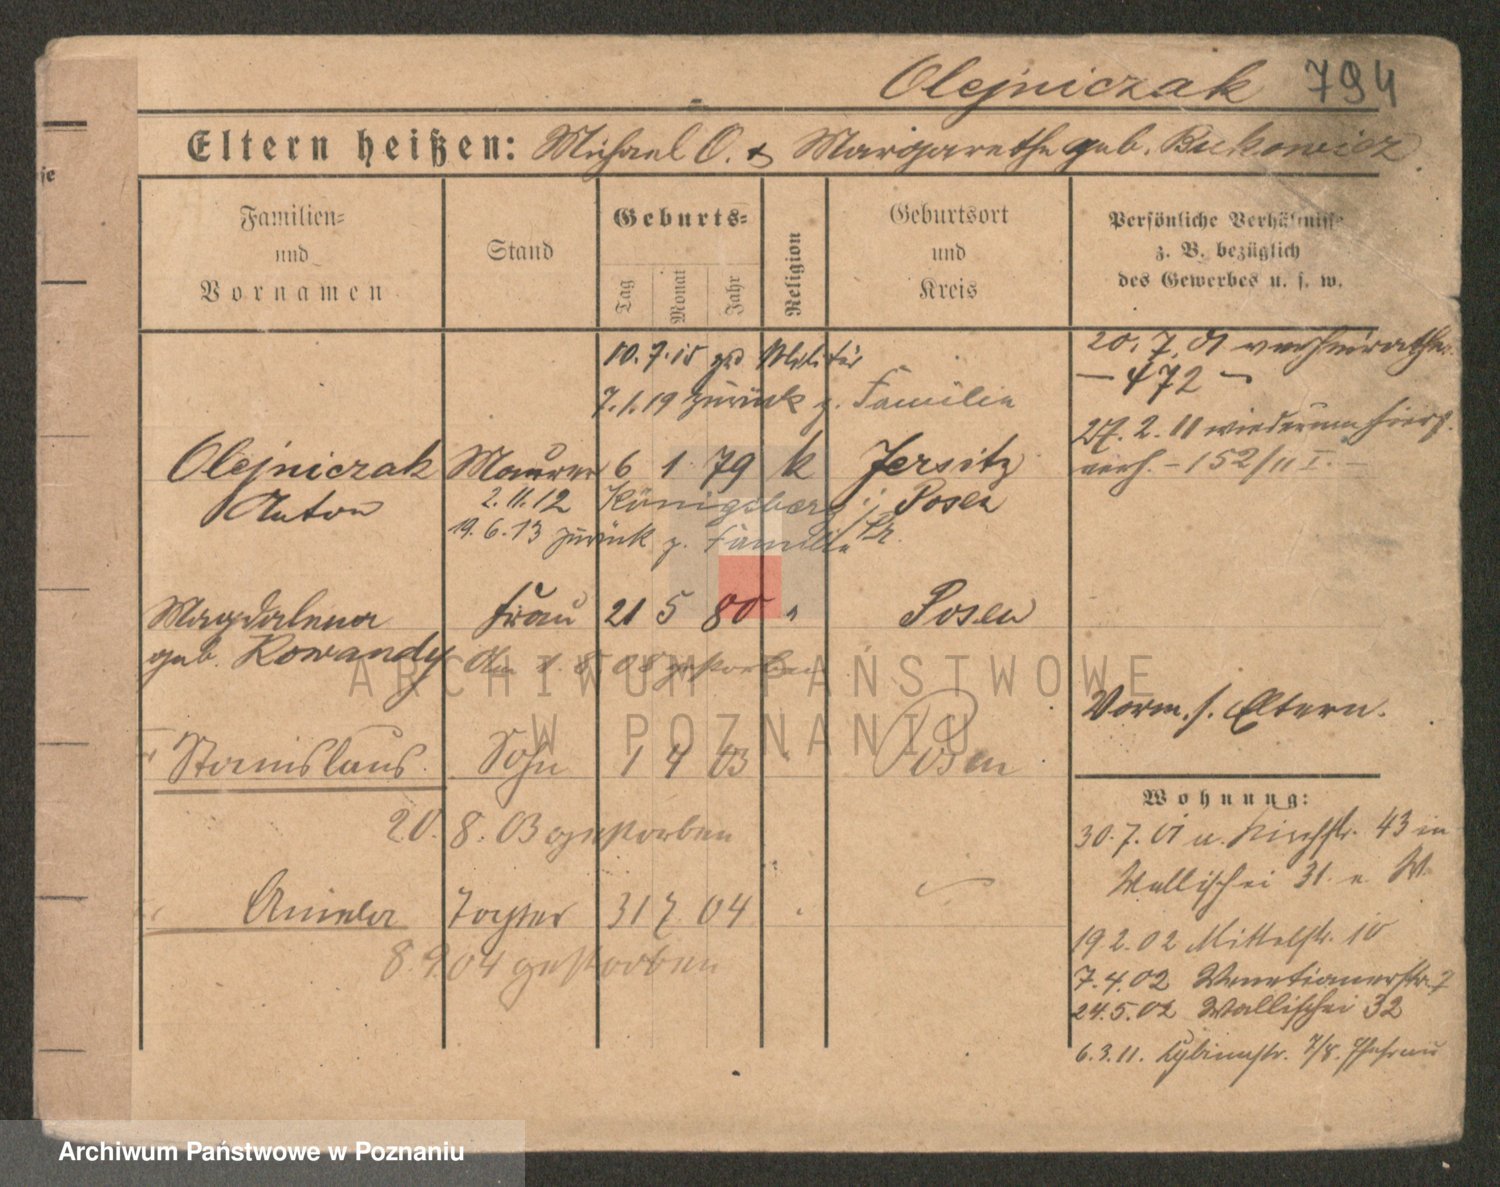 Olejniczak 794
Eltern heißen: Michael O. & Margarethe geb. Bukowicz
Familien=
und
Vornamen
Stand
Geburts=
Tag
Monat
Jahr
Religion
Geburtsort
und
Kreis
Persönliche Verhältnisse
z. B. bezüglich
des Gewerbes u. s. w.
10.7.15 Militär
7.1.19 zurück z. Familie
20.7.01 verheirathet
— 472 —
27.2.11 wiederum hier
verh. - 152/11 I. -
Olejniczak Maurer 6 1 79 k Jersitz
Anton 2.11.12 Königsberg i/ Posen
19.6.13 zurück z. Familie Pr.
Magdalena Frau 21 5 80 " Posen
geb. Rowandy Am 1.8.08 gestorben
Vorm. s. Eltern.
Stanislaus Sohn 1 4 03 " Posen
20.8.03 gestorben
Aniela Tochter 31 7 04
8.9.04 gestorben
Wohnung:
30.7.01 u. Kirchstr. 43 in
Wallischei 31 W
19.2.02 Mittelstr. 10
7.4.02 Venetianerstr. 7
24.5.02 Wallischei 32
6.3.11. 7/8. Ehefrau
ARCHIWUM PAŃSTWOWE
W POZNANIU
Archiwum Państwowe w Poznaniu